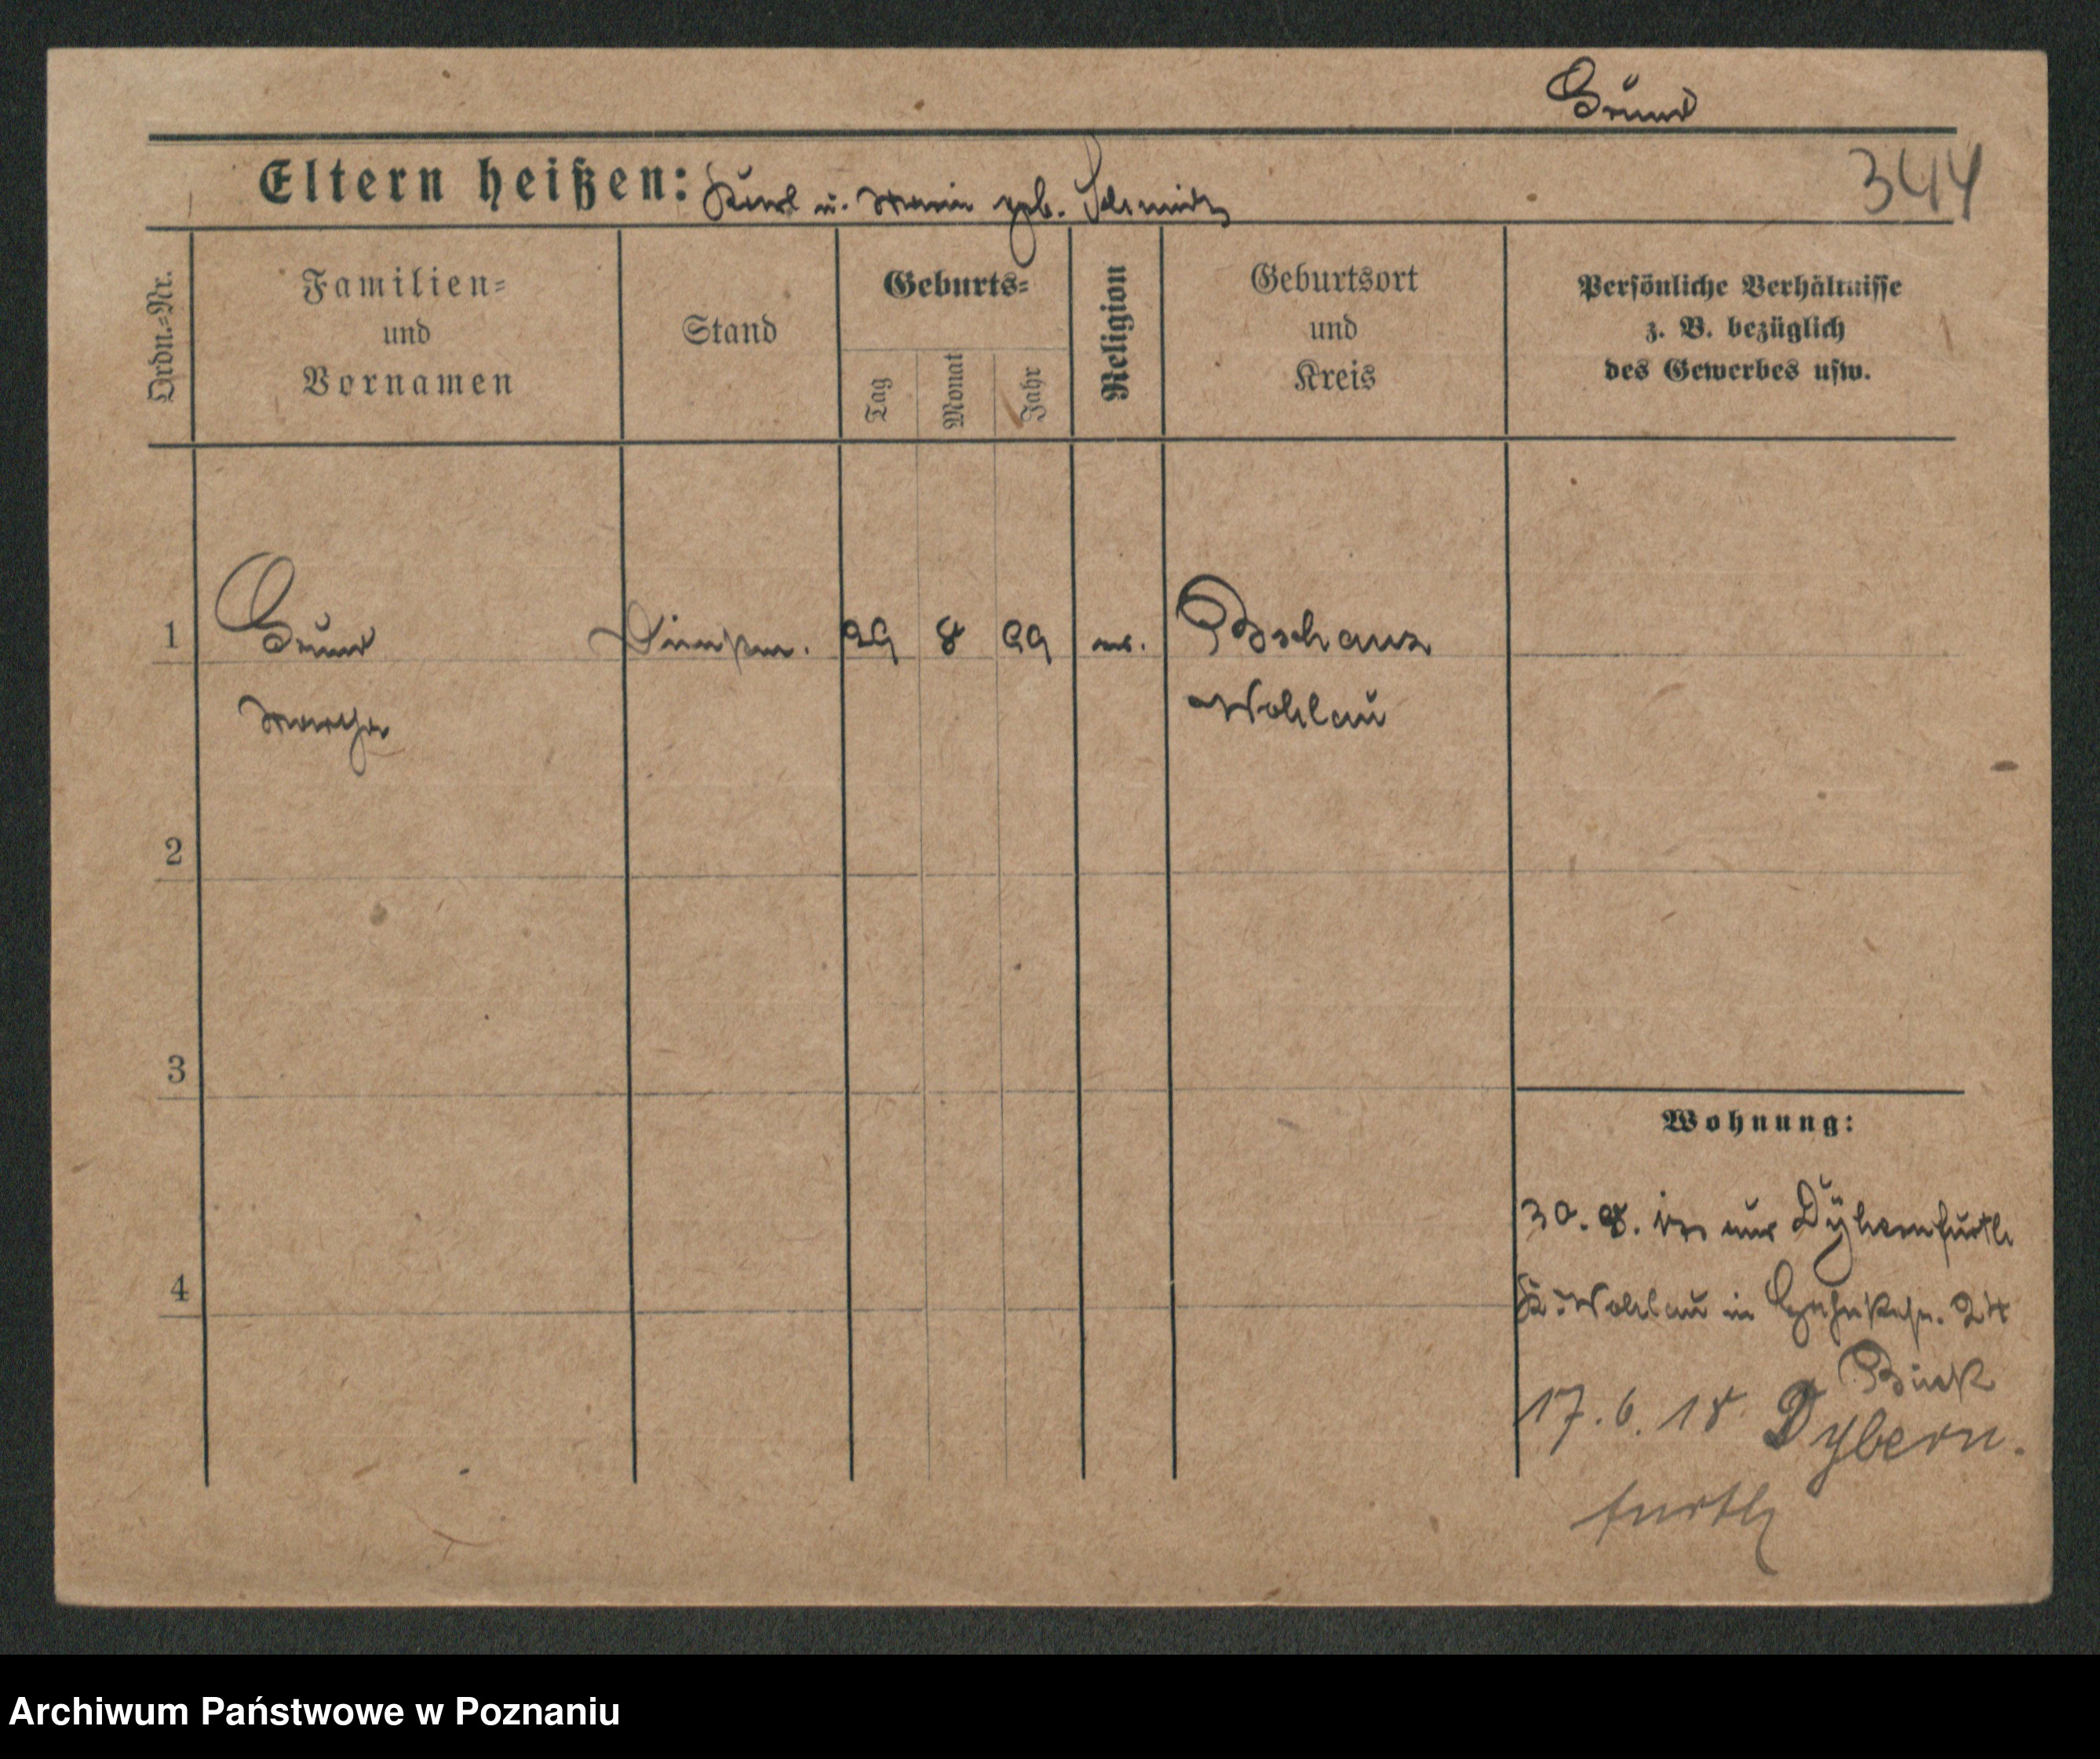 Grund
Eltern heißen: Karl u. Marie geb. Schmidt
344
Ordn.=Nr.
Familien=
und
Vornamen
Stand
Geburts=
Tag
Monat
Jahr
Religion
Geburtsort
und
Kreis
Persönliche Verhältnisse
z. B. bezüglich
des Gewerbes usw.
1
Grund
29 8 99
Wohlau
Martha
2
3
Wohnung:
4
30. 8. Dyhernfurth
Kr. Wohlau in
17. 6. 18. Dyhern.
furth
Archiwum Państwowe w Poznaniu